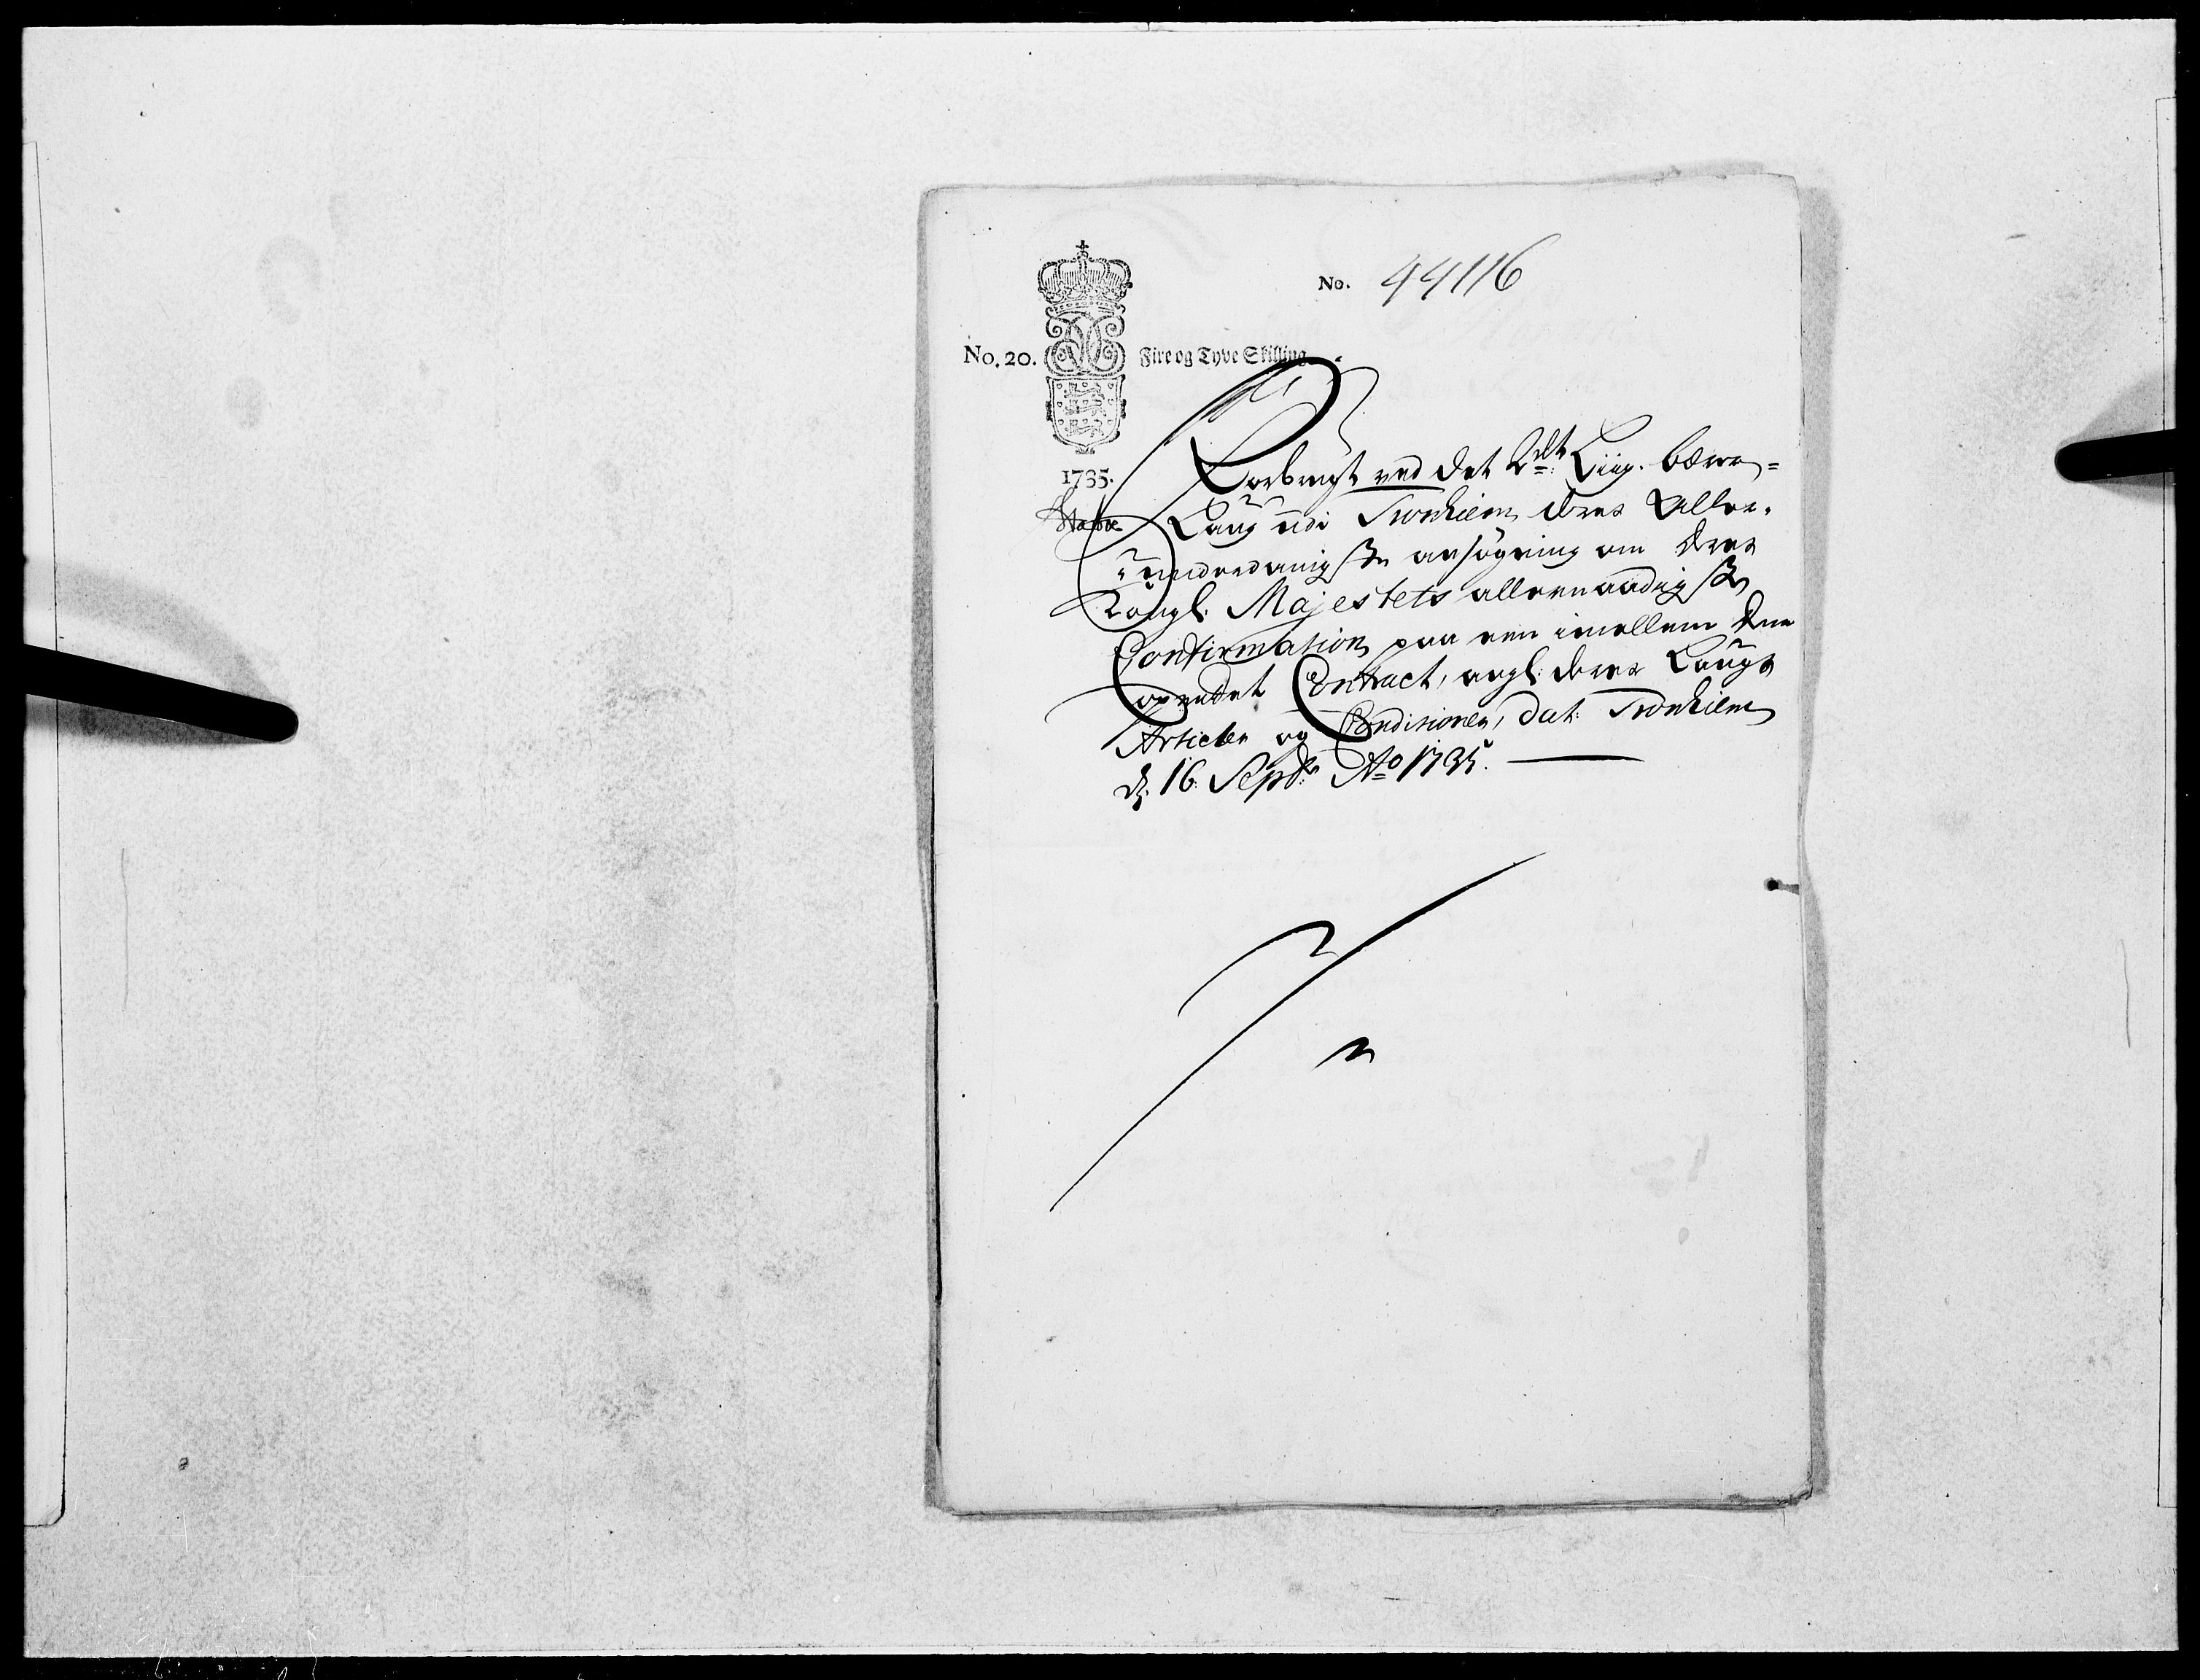 No. 44116
No. 20. Fire og Tyve Skilling
1735.
Forbragt ved det 2det Liig-bærer-
Laug udi Tronhiem deres Aller-
underdanigste ansøgning om Deres
Kongl: Majestets allernaadigste
Confirmation paa een imellem dem
oprettet Contract, angl: deres Laugs
Articler og Conditioner, dat: Tronhiem
d: 16 Septr Ao 1735.